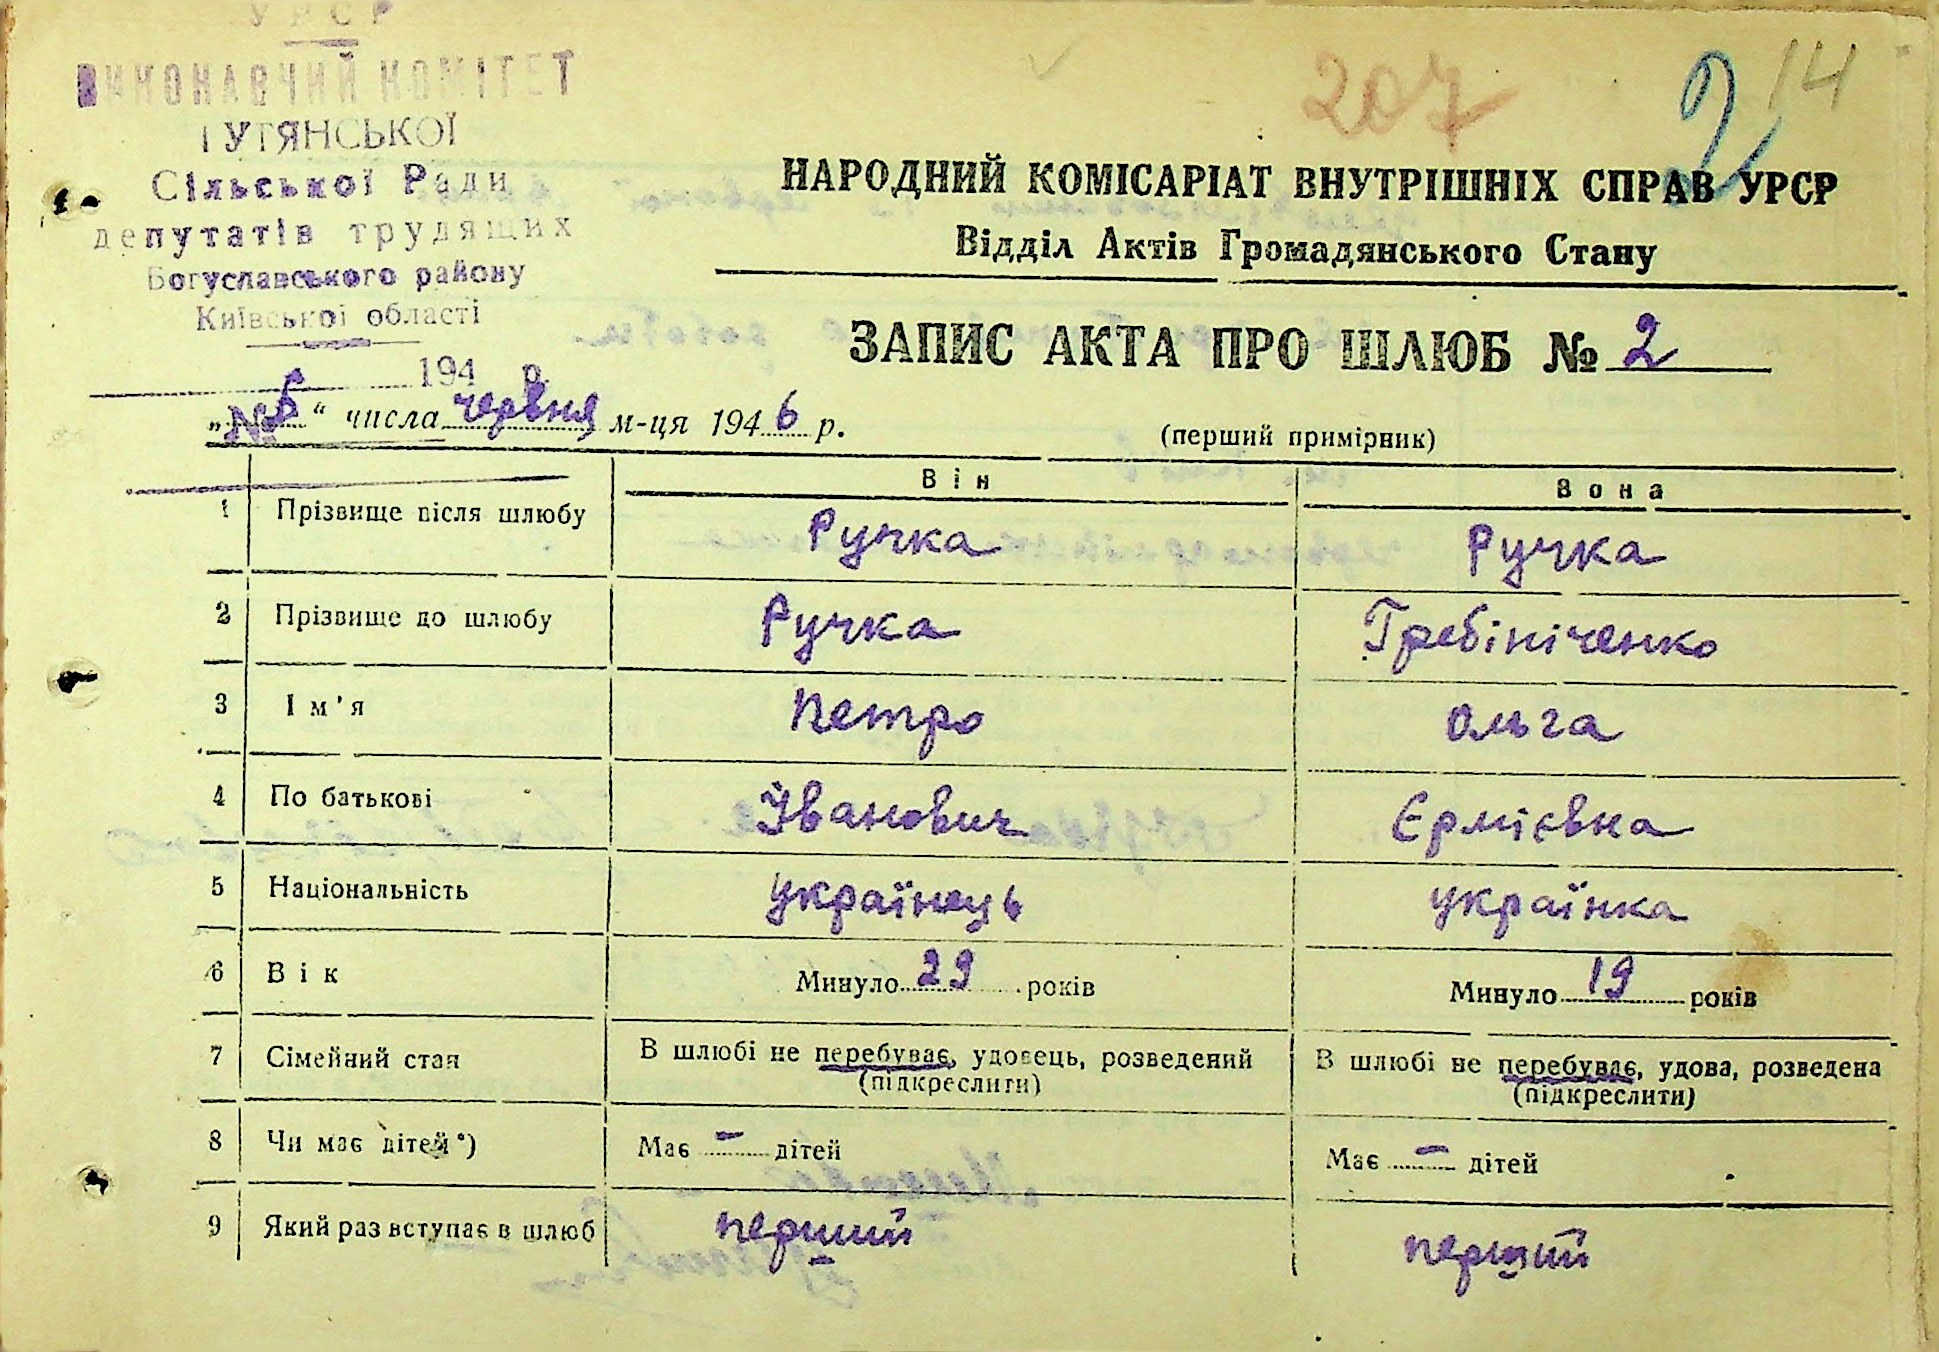 УРСР
ВИКОНАВЧИЙ КОМІТЕТ
ГУТЯНСЬКОЇ
Сільської Ради
депутатів трудящих
Богуславського району
Київської області
194 р.
№
207
2
14
НАРОДНИЙ КОМІСАРІАТ ВНУТРІШНІХ СПРАВ УРСР
Відділ Актів Громадянського Стану
ЗАПИС АКТА ПРО ШЛЮБ № 2
„ “ числа червня м-ця 1946 р.
(перший примірник)
Він Вона
1 Прізвище після шлюбу Ручка Ручка
2 Прізвище до шлюбу Ручка Гребініченко
3 Ім'я Петро Ольга
4 По батькові Іванович Єрмієвна
5 Національність українець українка
6 Вік Минуло 29 років Минуло 19 років
7 Сімейний стан В шлюбі не перебуває, удовець, розведений В шлюбі не перебуває, удова, розведена
(підкреслити) (підкреслити)
8 Чи має дітей*) Має – дітей Має – дітей
9 Який раз вступає в шлюб перший перший